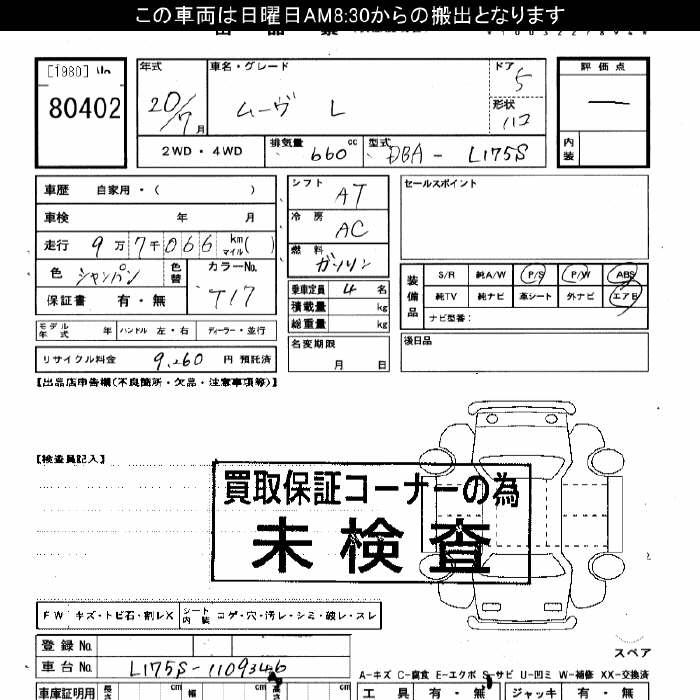 この車両は日曜日AM8:30からの搬出となります
[1980]
80402
年式
20/7月
車名・グレード
ムーヴ L
ドア
5
形状
評価点
2WD・4WD
排気量
660 cc
型式
DBA-L175S
内装
車歴 自家用・( )
車検 年 月
走行 9万7千066 km マイル( )
色 シャンパン
色替
カラーNo.
T17
保証書 有・無
モデル年式 年 ハンドル 左・右 ディーラー・並行
リサイクル料金 9,260 円 預託済
シフト AT
冷房 AC
燃料 ガソリン
乗車定員 4 名
積載量 kg
総重量 kg
名変期限
月 日
セールスポイント
装備品
S/R 純A/W P/S P/W ABS
純TV 純ナビ 革シート 外ナビ エアB
ナビ型番:
後日品
【出品店申告欄(不良箇所・欠品・注意事項等)】
【検査員記入】
買取保証コーナーの為
未検査
FW キズ・トビ石・割レX シート内装 コゲ・穴・汚レ・シミ・破レ・スレ
登録No.
車台No. L175S-1109346
スペア
A-キズ C-腐食 E-エクボ S-サビ U-凹ミ W-補修 XX-交換済
車庫証明用 長さ cm 幅 cm 高さ cm
工具 有・無 ジャッキ 有・無